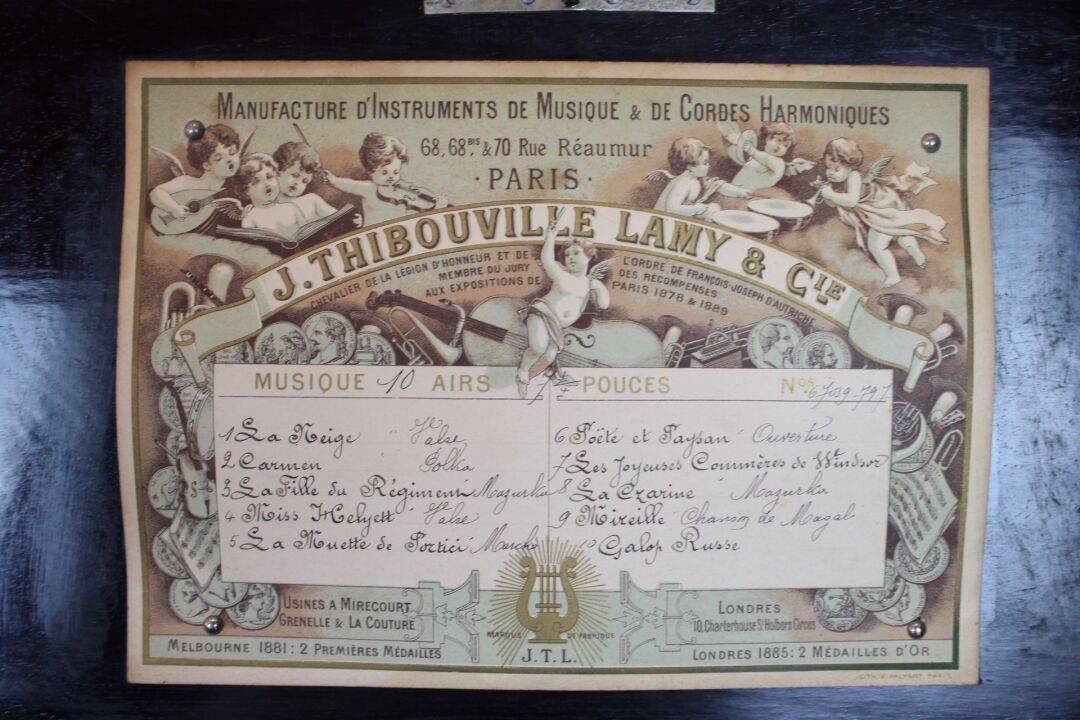 MANUFACTURE D'INSTRUMENTS DE MUSIQUE & DE CORDES HARMONIQUES
68, 68BIS, & 70 RUE RÉAUMUR
· PARIS ·
J. THIBOUVILLE LAMY & CIE
CHEVALIER DE LA LÉGION D'HONNEUR ET DE L'ORDRE DE FRANÇOIS-JOSEPH D'AUTRICHE
MEMBRE DU JURY DES RÉCOMPENSES
AUX EXPOSITIONS DE PARIS 1878 & 1889
MUSIQUE 10 AIRS 7 POUCES NOS 
1 La Neige Valse
2 Carmen Polka
3 La Fille du Régiment Mazurka
4 Miss Helyett Valse
5 La Muette de Portici Marche
6 Poëte et Paysan Ouverture
7 Les Joyeuses Commères de Windsor
8 La Czarine Mazurka
9 Mireille Chanson de Magal
10 Galop Russe
USINES A MIRECOURT
GRENELLE & LA COUTURE
MARQUE DE FABRIQUE
J.T.L.
LONDRES
10, Charterhouse St Holborn Circus
MELBOURNE 1881: 2 PREMIÈRES MÉDAILLES
LONDRES 1885: 2 MÉDAILLES D'OR